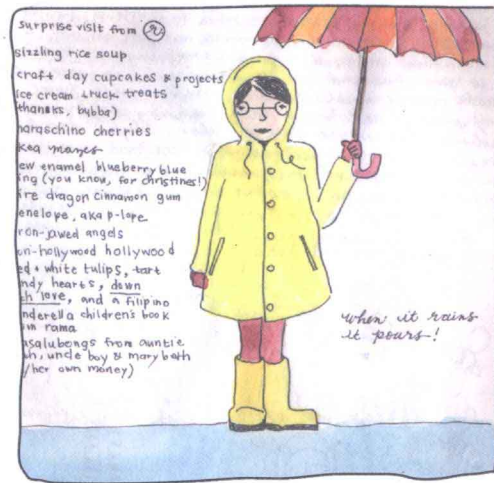 surprise visit from r
sizzling rice soup
craft day cupcakes & projects
ice cream truck treats
(thanks, bubba)
maraschino cherries
ikea mazes
ew enamel blueberry blue
ing (you know, for christines!)
ire dragon cinnamon gum
enelope, aka p-lope
ron-jawed angels
on-hollywood hollywood
ed + white tulips, tart
ndy hearts, down
th love, and a filipino
nderella children's book
in rama
asalubongs from auntie
h, uncle boy & mary beth
/her own money)
when it rains
it pours!